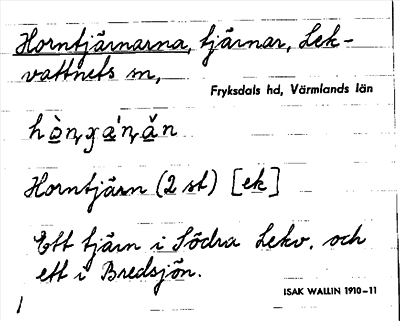 Horntjärnarna, tjärnar, Lek-
vattnets sn,
Fryksdals hd, Värmlands län
Horntjärn (2 st) [ek]
Ett tjärn i Södra Lekv. och
ett i Bredsjön.
ISAK WALLIN 1910-11